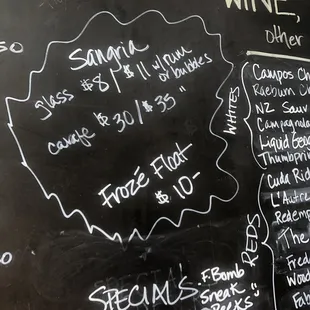 WINE,
other
50
Sangria
glass $8 / $11 w/rum or bubbles
carafe $30 / $35 "
Frozé Float
$10-
WHITES
Campos Ch
Raeburn Ch
NZ Sauv
Campagnola
Liquid Geo
Thumbprin
REDS
Cuda Rid
L'Autre
Redemp
The
Fred
Wood
Fab
50
SPECIALS:
F.Bomb
Sneak
Peeks"